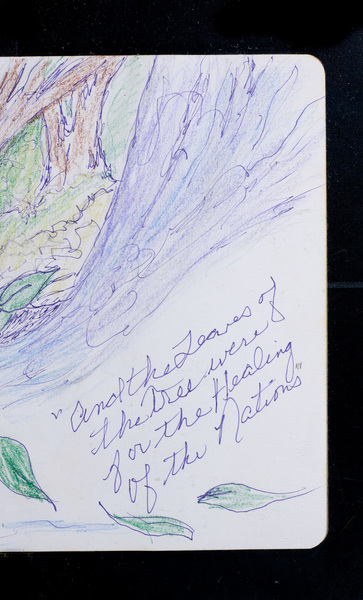 "And the Leaves of
the tree were
for the Healing
of the Nations"